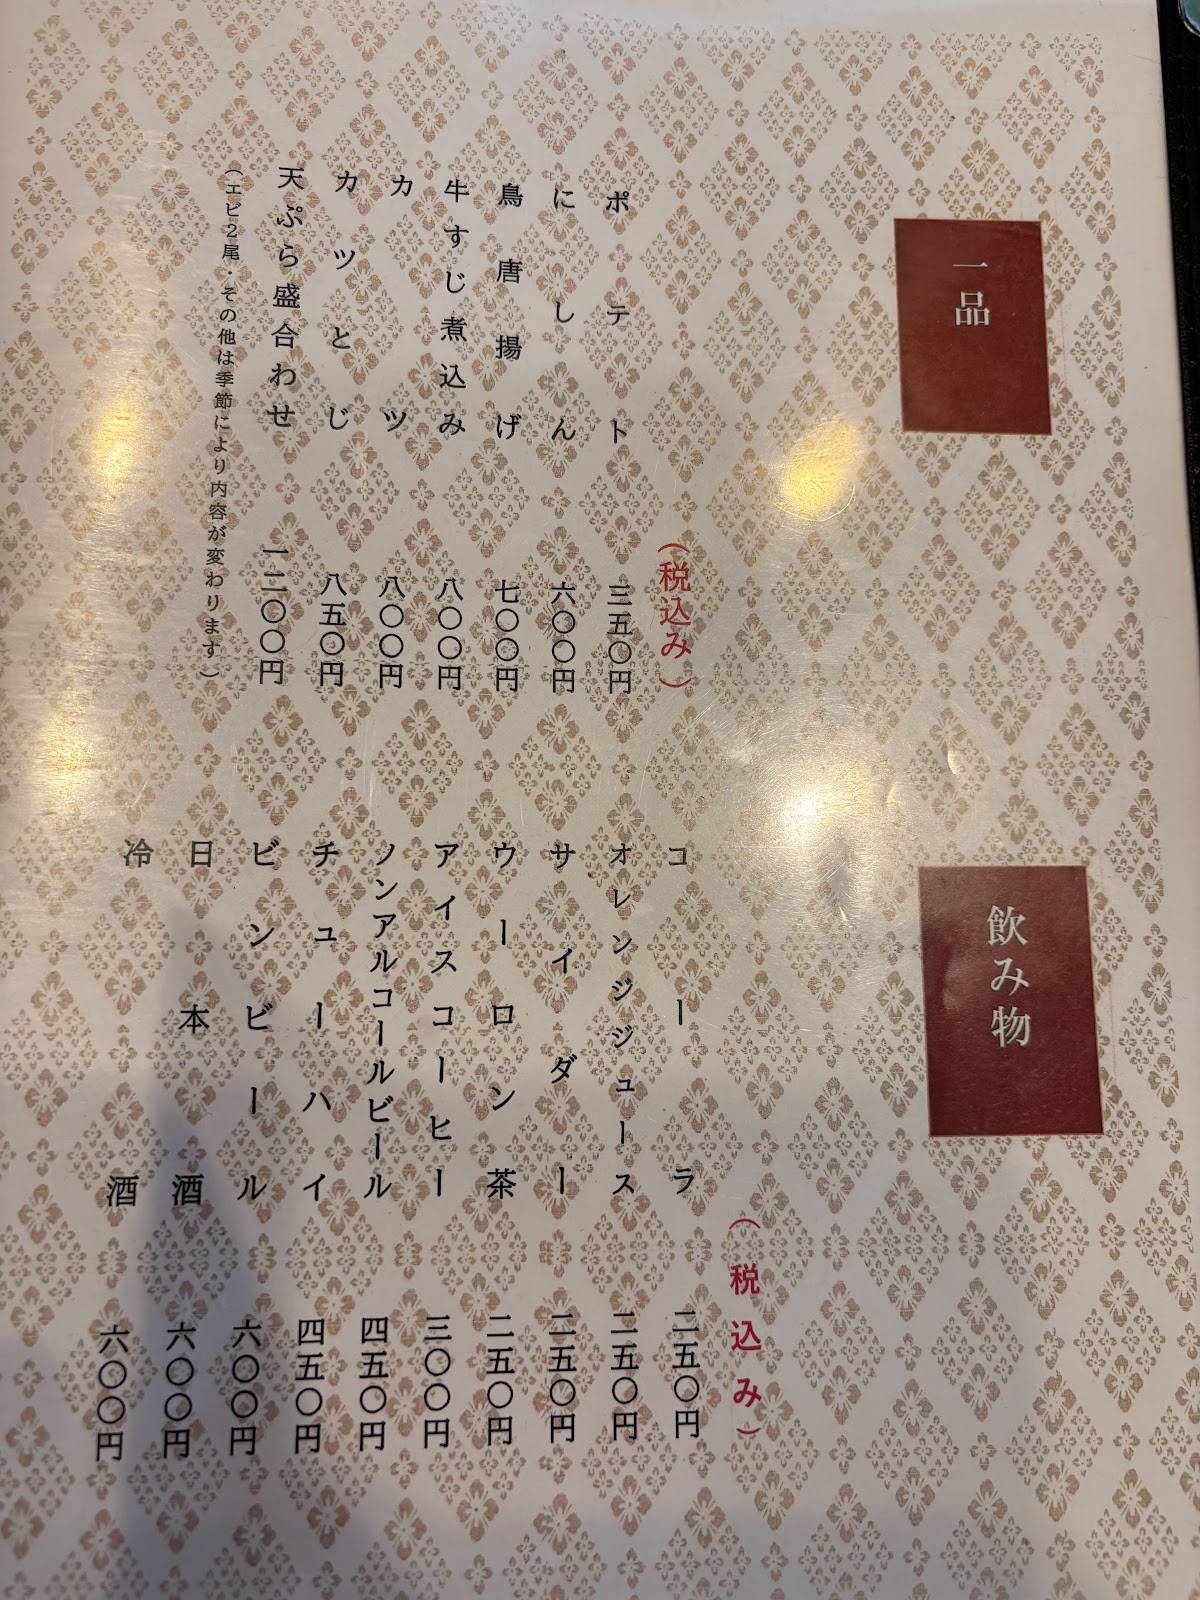 一品
(税込み)
ポテト 三五〇円
にしん 六〇〇円
鳥唐揚げ 七〇〇円
牛すじ煮込み 八〇〇円
カツ 八〇〇円
カツとじ 八五〇円
天ぷら盛合わせ 一二〇〇円
(エビ2尾・その他は季節により内容が変わります)
飲み物
(税込み)
コーラ 二五〇円
オレンジジュース 二五〇円
サイダー 二五〇円
ウーロン茶 二五〇円
アイスコーヒー 三〇〇円
ノンアルコールビール 四五〇円
チューハイ 四五〇円
ビンビール 六〇〇円
日本酒 六〇〇円
冷酒 六〇〇円